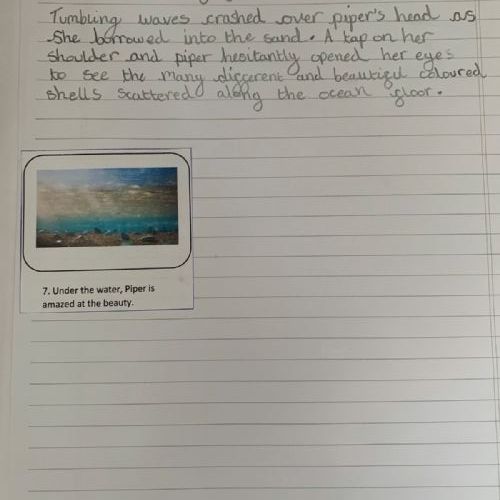 Tumbling waves crashed over piper's head as
she borrowed into the sand. A tap on her
shoulder and piper hesitantly opened her eyes
to see the many different and beautiful coloured
shells scattered along the ocean floor.
7. Under the water, Piper is
amazed at the beauty.